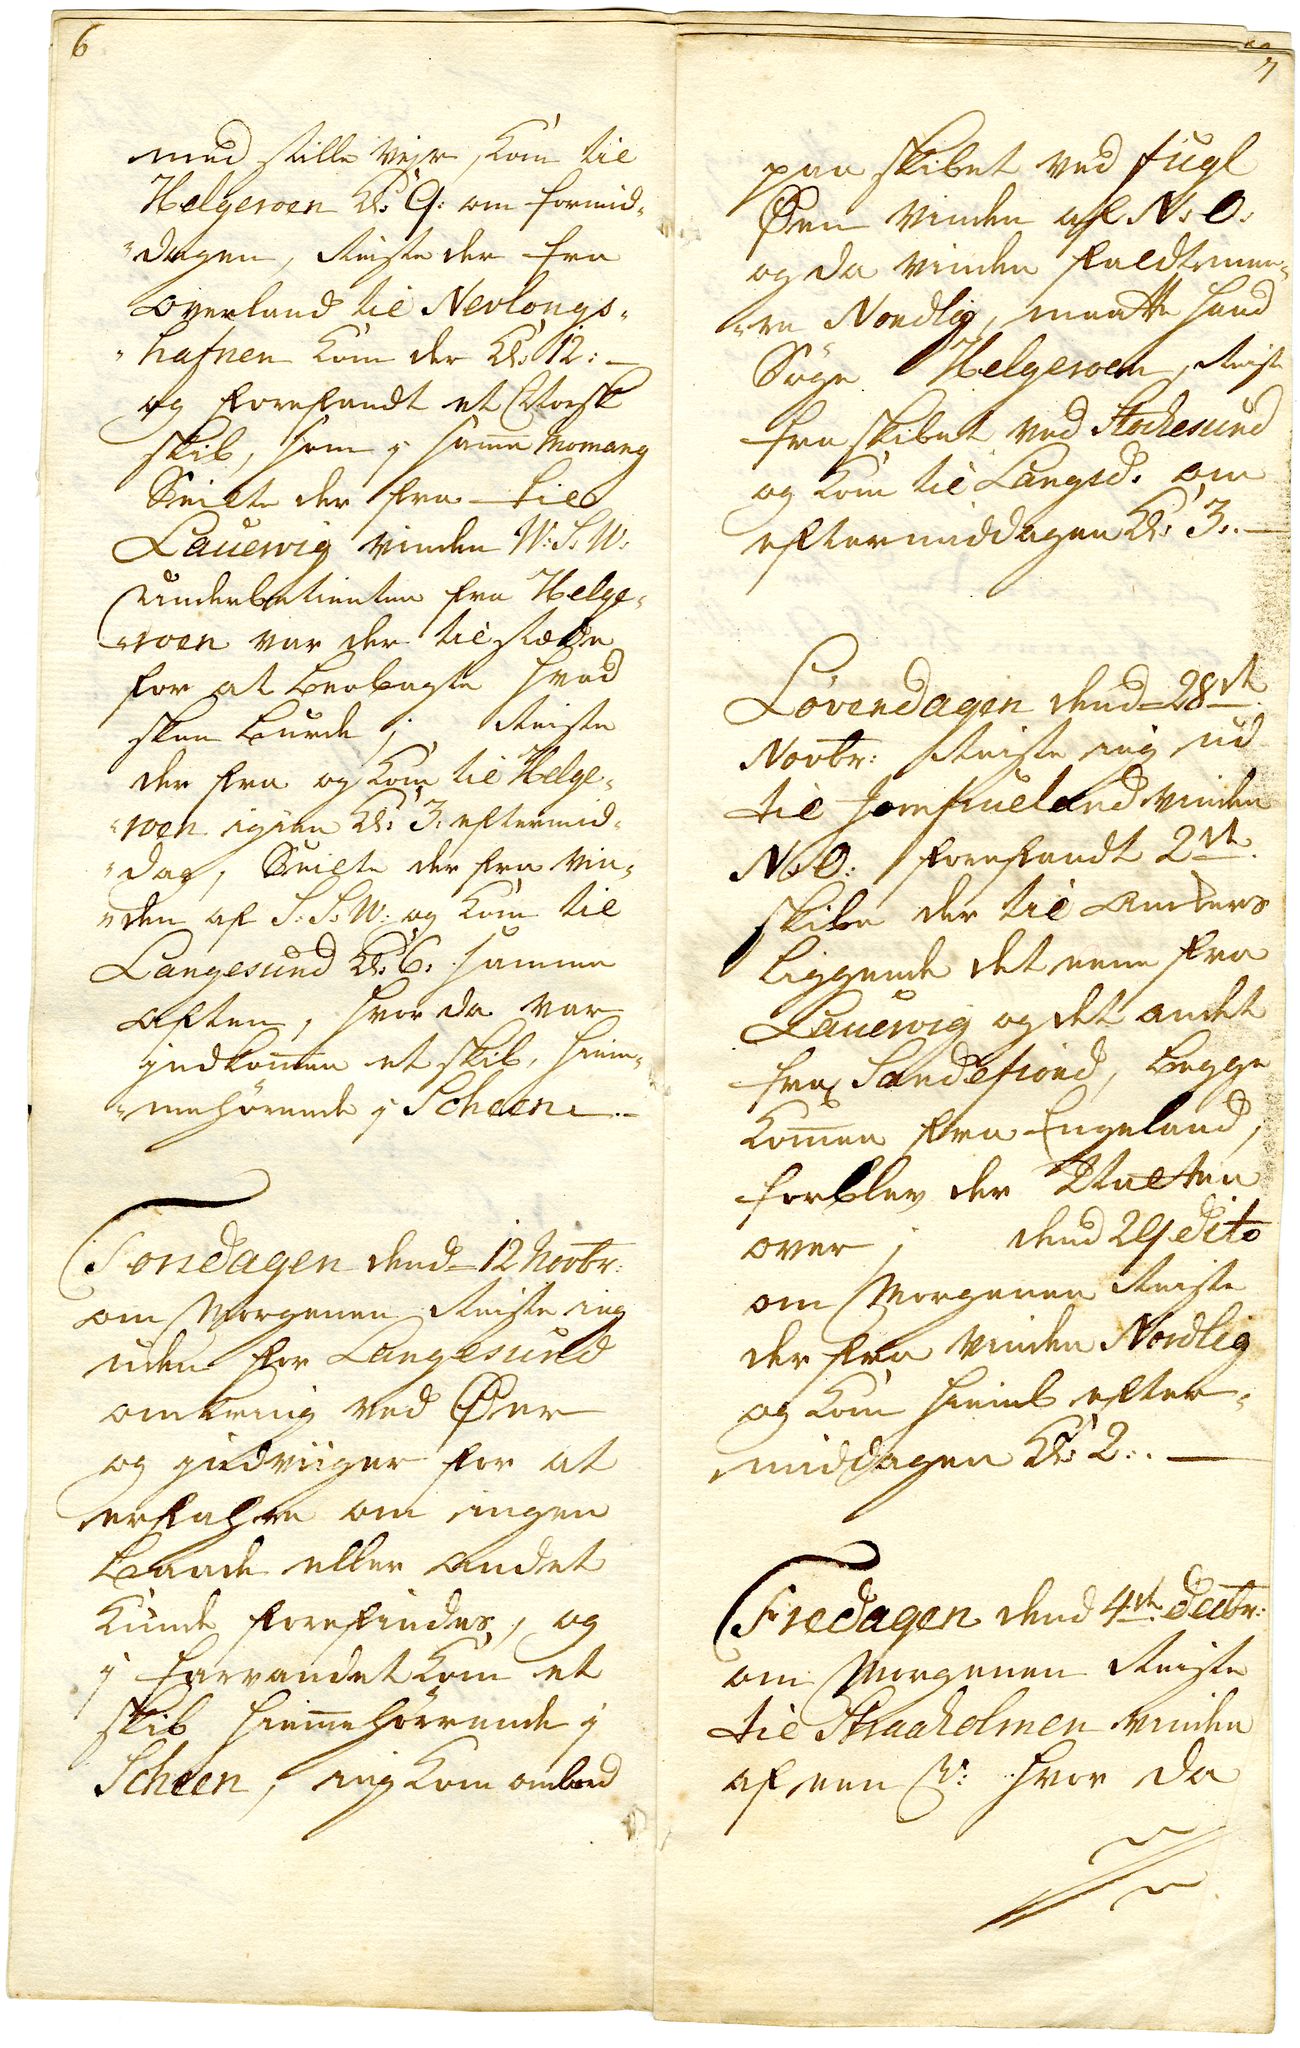 6
med stille Vejr, kom til
Helgeroen Kl: 9: om formid-
-dagen, Reiste der fra
overland til Nevlongs-
-hafnen kom der Kl: 12: —
og forefandt et Norsk
skib, som i samme Momang
Seilte der fra til
Lauervig vinden W:S:W:
Underbetienten fra Helge-
-roen var der tilstæde
for at beobagte hvad
skee burde; Reiste
der fra og kom til Helge-
-roen igien Kl: 3: eftermid-
-dag, Seilte der fra vin-
-den af S:S:W: og kom til
Langesund Kl: 6: samme
aften, hvor da var
indkommen et skib, hiem-
-mehörende i Scheen. —
Torsdagen dend 12 Novbr:
om Morgenen Reiste ieg
uden for Langesund
omkring ved Öer
og indviiger for at
erfahre om ingen
Baade eller andet
kunde forefindes, og
i farvandet kom et
skib hiemmehörrende i
Scheen, ieg kom ombord
7
paa skibet ved fugl
Öen vinden af N:O:
og da vinden faldt mee-
-re Nordlig, maatte hand
Söge Helgeroen, Reiste
fra skibet ved Stochesund
og kom til Langsd: om
eftermiddagen Kl: 3: —
Löverdagen dend 28de
Novbr: Reiste ieg ud
til Jomfrueland vinden
N:O: forefandt 2de
skibe der til Anckers
liggende det eene fra
Lauervig og det andet
fra Sandefiord, begge
kommen fra Engeland,
forblev der Natten
over; dend 29 dito
om Morgenen Reiste
der fra vinden Nordlig
og kom hiemb efter-
middagen Kl: 2: —
Fredagen dend 4de Decbr:
om Morgenen Reiste
til Straaholmen vinden
af een N: hvor da